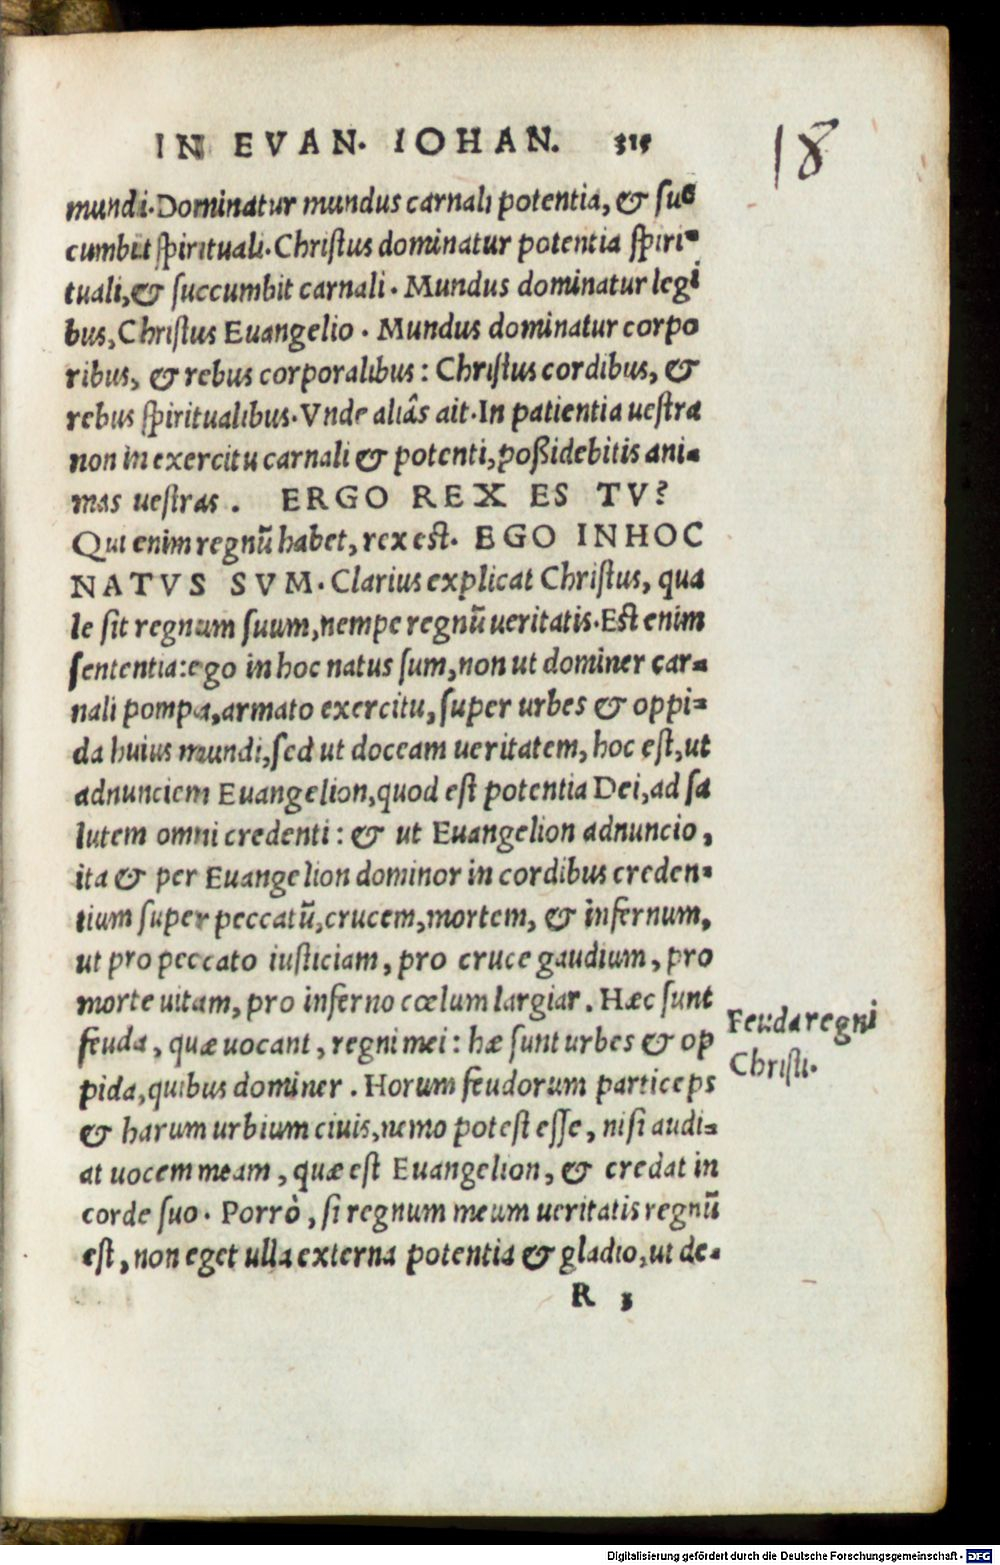 IN EVAN. IOHAN. 315
18
mundi. Dominatur mundus carnali potentia, & suc
cumbit spirituali. Christus dominatur potentia spiri-
tuali, & succumbit carnali. Mundus dominatur legi
bus, Christus Euangelio. Mundus dominatur corpo
ribus, & rebus corporalibus: Christus cordibus, &
rebus spiritualibus. Vnde aliâs ait. In patientia uestra
non in exercitu carnali & potenti, poßidebitis ani-
mas uestras. ERGO REX ES TV?
Qui enim regnũ habet, rex est. EGO IN HOC
NATVS SVM. Clarius explicat Christus, qua
le sit regnum suum, nempe regnũ ueritatis. Est enim
sententia: ego in hoc natus sum, non ut dominer car-
nali pompa, armato exercitu, super urbes & oppi-
da huius mundi, sed ut doceam ueritatem, hoc est, ut
adnunciem Euangelion, quod est potentia Dei, ad sa
lutem omni credenti: & ut Euangelion adnuncio,
ita & per Euangelion dominor in cordibus creden-
tium super peccatũ, crucem, mortem, & infernum,
ut pro peccato iusticiam, pro cruce gaudium, pro
morte uitam, pro inferno cœlum largiar. Hæc sunt
feuda, quæ uocant, regni mei: hæ sunt urbes & op
pida, quibus dominer. Horum feudorum particeps
& harum urbium ciuis, nemo potest esse, nisi audi-
at uocem meam, quæ est Euangelion, & credat in
corde suo. Porrò, si regnum meum ueritatis regnũ
est, non eget ulla externa potentia & gladio, ut de-
R 3
Feuda regni
Christi.
Digitalisierung gefördert durch die Deutsche Forschungsgemeinschaft - DFG